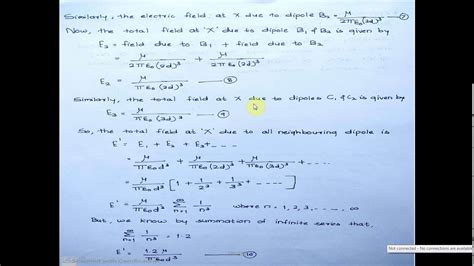 Similarly, the electric field at X due to dipole B₂ = μ / 2πε₀(2d)³ — ⑦
Now, the total field at 'X' due to dipole B₁ & B₂ is given by
E₂ = field due to B₁ + field due to B₂
= μ / 2πε₀(2d)³ + μ / 2πε₀(2d)³
E₂ = μ / πε₀(2d)³ — ⑧
Similarly, the total field at X due to dipoles C₁ & C₂ is given by
E₃ = μ / πε₀(3d)³ — ⑨
So, the total field at 'X' due to all neighbouring dipole is
E' = E₁ + E₂ + E₃ + ----
= μ / πε₀d³ + μ / πε₀(2d)³ + μ / πε₀(3d)³ + ----
= μ / πε₀d³ [1 + 1/2³ + 1/3³ + ----]
E' = μ / πε₀d³ ∑ₙ₌₁^∞ 1/n³ where n = 1, 2, 3, ----- ∞
But, we know by summation of infinite series that,
∑ₙ₌₁^∞ 1/n³ = 1.2
E' = 1.2 μ / πε₀d³ — ⑩
Not connected - No connections are available